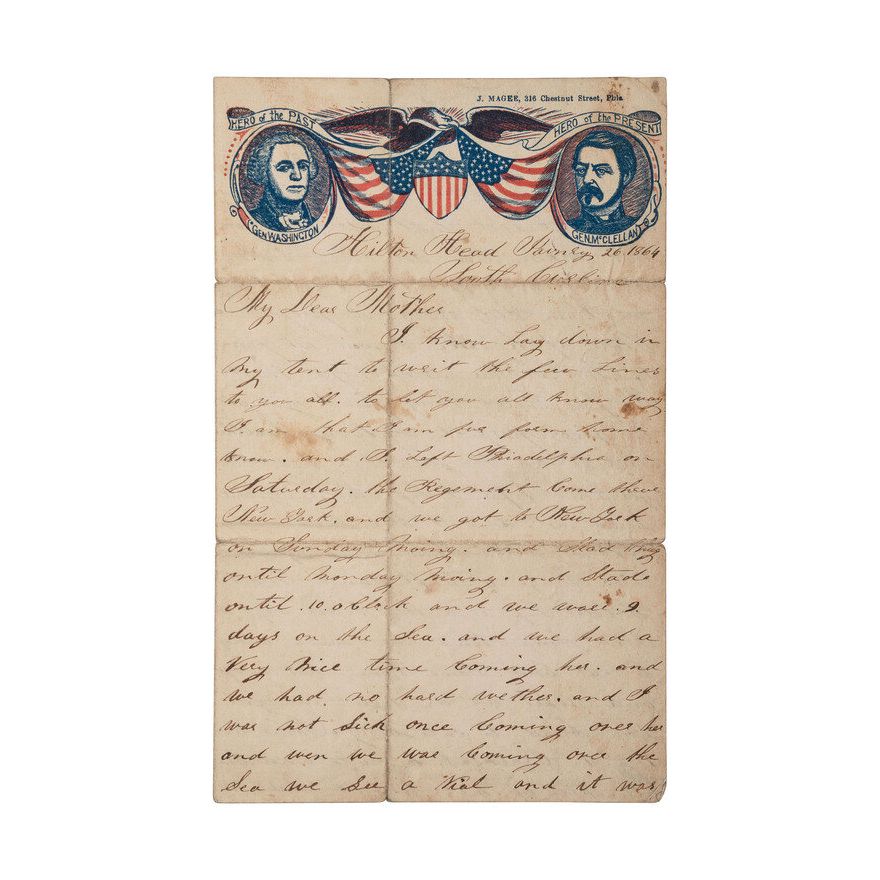 J. MAGEE, 316 Chestnut Street, Phla
HERO of the PAST
HERO of the PRESENT
GEN WASHINGTON
GEN. McCLELLAN
Hilton Head 26 1864
South
My Dear Mother
I know Lay down in
my tent to writ the few Lines
to you all. to let you all know way
I am that I am fre form home
know. and I Left on
Saturday. the Regement Come
New York. and we got to New York
on Sunday and
ontil Monday and Stade
ontil 10. oClock and we ware 9
days on the Sea. and we had a
Very Nice time Coming her. and
we had no hard wether. and I
was not Sick once Coming over her
and wen we was Coming over the
Sea we See a and it was